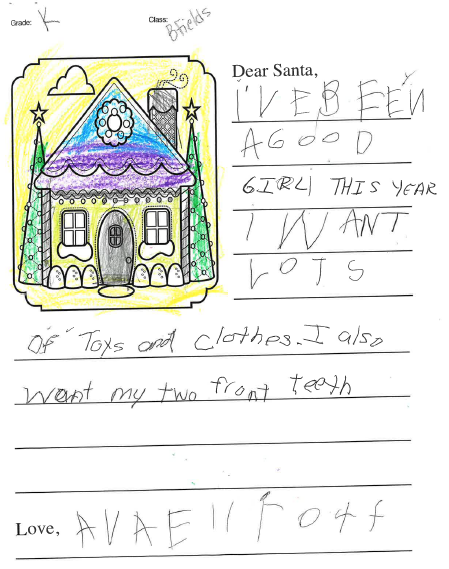 Grade: K Class: BFields
Dear Santa,
I'VE BEEN
A GOOD
GIRL THIS YEAR
I WANT
LOTS
OF Toys and clothes. I also
Want my two front teeth
Love, AVA E